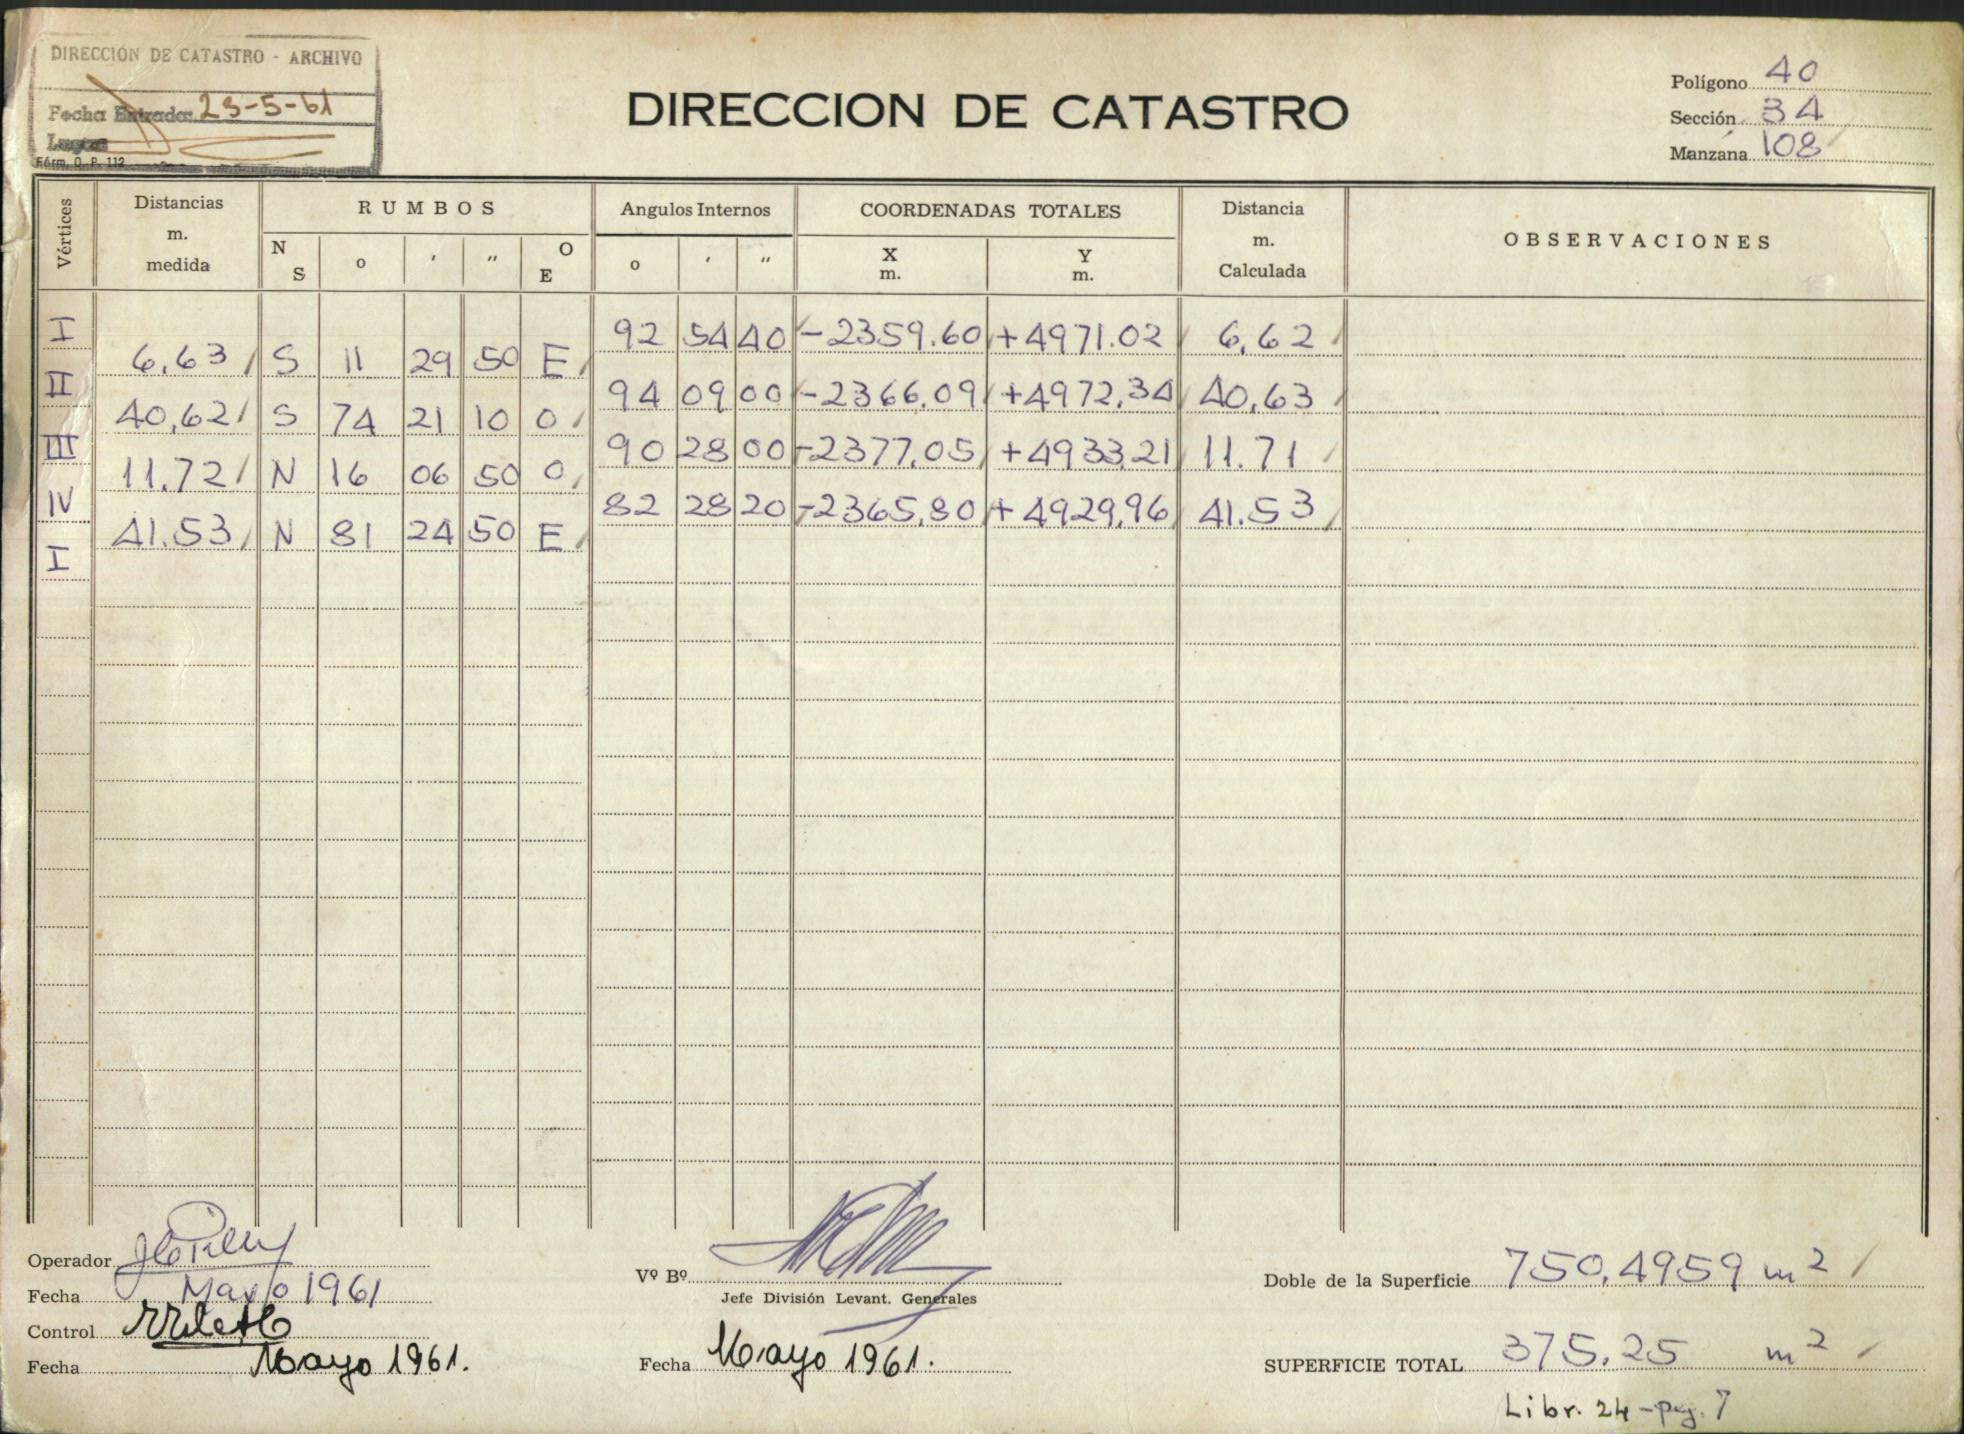 DIRECCIÓN DE CATASTRO - ARCHIVO
Fecha Entrada: 23-5-61
Form. O. P. 112
DIRECCION DE CATASTRO
Polígono 40
Sección 34
Manzana 108
Vértices
Distancias m. medida
RUMBOS
N S o ′ ″ O E
Angulos Internos
o ′ ″
COORDENADAS TOTALES
X m. Y m.
Distancia m. Calculada
OBSERVACIONES
I 92 54 40 -2359.60 +4971.02 6,62
6,63 S 11 29 50 E
II 94 09 00 -2366,09 +4972,34 40,63
40,62 S 74 21 10 O
III 90 28 00 -2377,05 +4933,21 11.71
11.72 N 16 06 50 O
IV 82 28 20 -2365,80 +4929,96 41.53
41.53 N 81 24 50 E
I
Operador
Fecha Mayo 1961
Control
Fecha Mayo 1961.
Vº Bº
Jefe División Levant. Generales
Fecha Mayo 1961.
Doble de la Superficie 750,4959 m2
SUPERFICIE TOTAL 375,25 m2
Libr. 24 - pag. 7